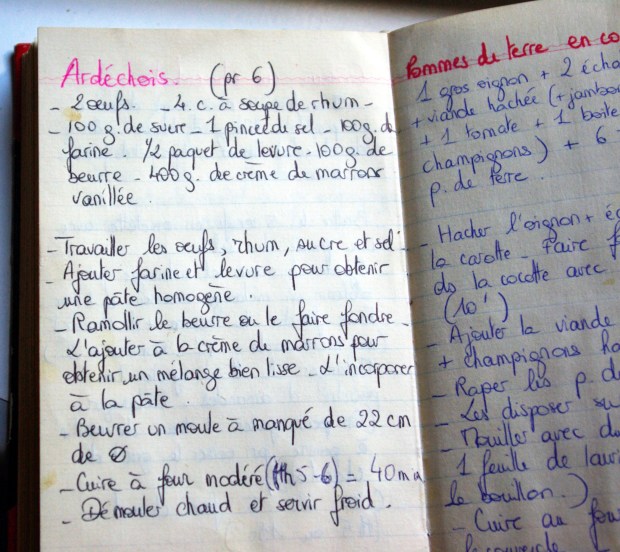 Ardéchois. (pr 6)
- 2 oeufs. - 4. c. à soupe de rhum -
- 100 g. de sucre - 1 pincée de sel - 100g. de
farine. 1/2 paquet de levure - 100g. de
beurre - 400g. de crème de marrons
vanillée.
- Travailler les oeufs, rhum, sucre et sel
- Ajouter farine et levure pour obtenir
une pâte homogène.
- Ramollir le beurre ou le faire fondre.
L'ajouter à la crème de marrons pour
obtenir un mélange bien lisse - L'incorporer
à la pâte.
- Beurrer un moule à manqué de 22 cm
de Ø
- Cuire à four modéré (th 5-6) = 40 mn
- Démouler chaud et servir froid.
Pommes de terre en co
1 gros oignon + 2 écha
+ viande hachée (+ jambon
+ 1 tomate + 1 boite
champignons) + 6
p. de terre.
- Hacher l'oignon + éc
la carotte - Faire f
ds la cocotte avec
(10')
- Ajouter la viande
+ champignons ha
- Raper les p. d
- Les disposer su
- Mouiller avec du
1 feuille de lauri
le bouillon.)
- Cuire au fou
le couvercle